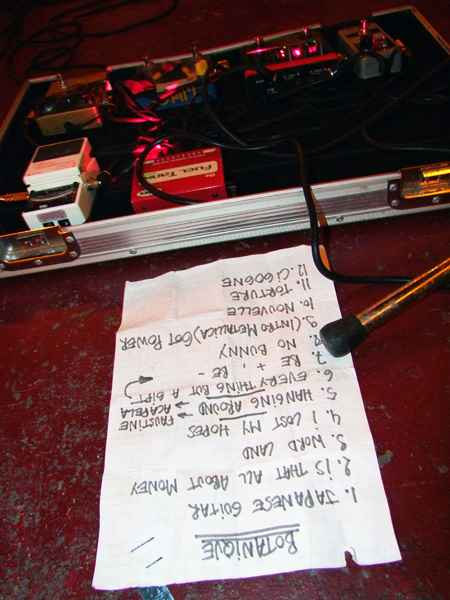 BOTANIQUE
1. JAPANESE GUITAR
2. IS THAT ALL ABOUT MONEY
3. WORD LAND
4. I LOST MY HOPES
5. HANGING AROUND
FAUSTINE
ACAPELA
6. EVERYTHING BUT A GIFT
7. BE +, BE -
8. NO BUNNY
9. (INTRO METALLICA) GOT POWER
10. NOUVELLE
11. TORTURE
12. CIGOGNE
FUEL TANK